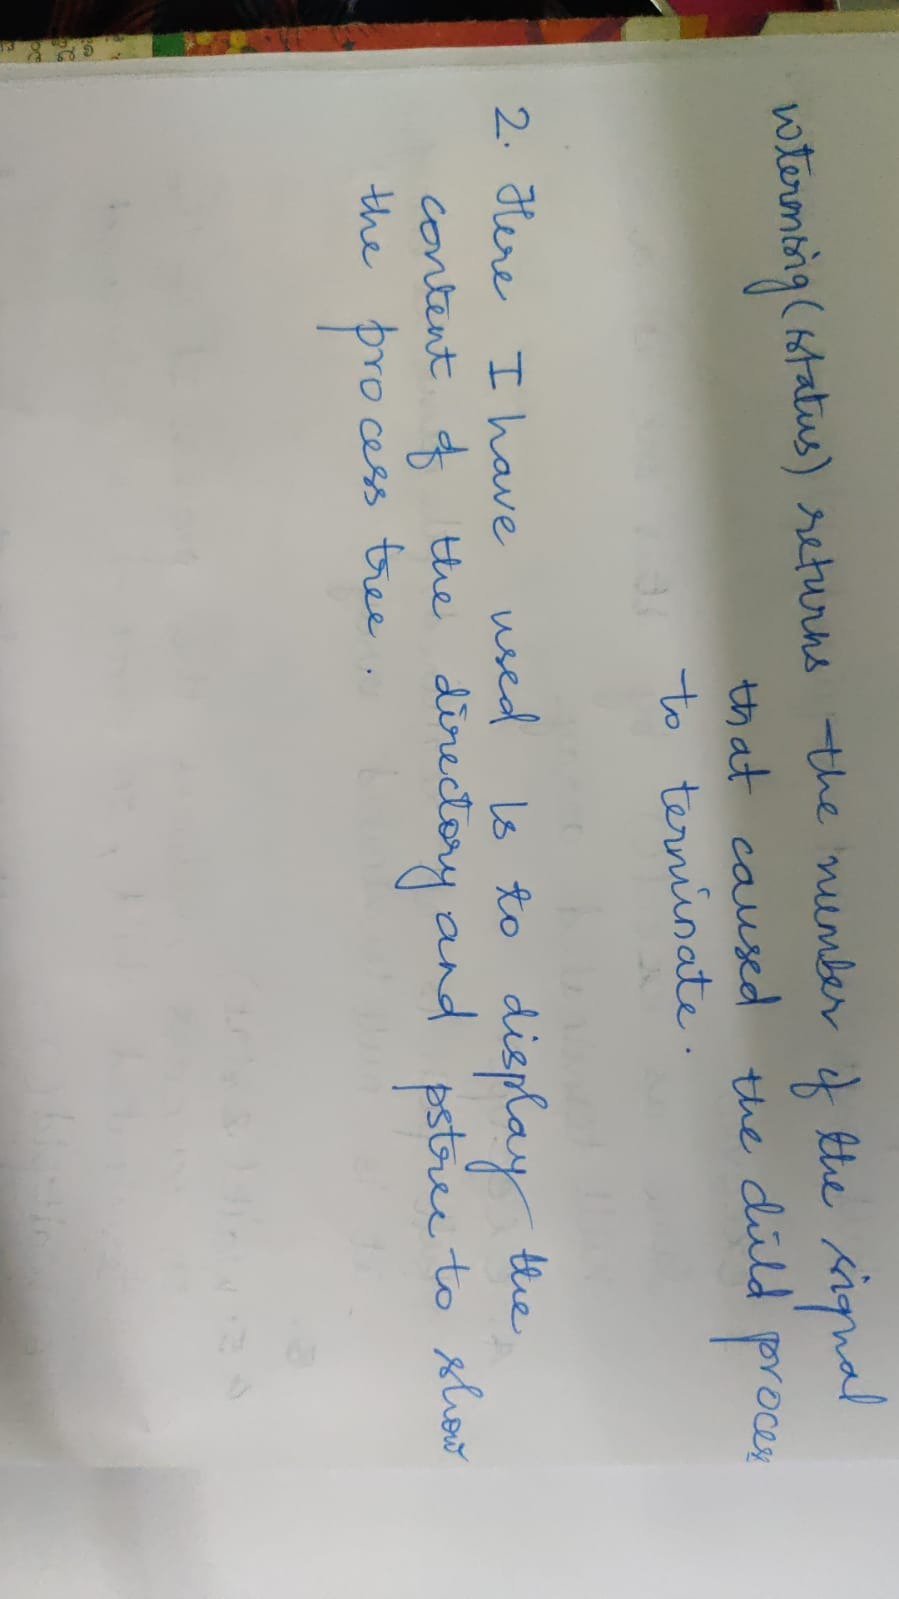 wtermsig(status) returns the number of the signal
that caused the child process
to terminate.
2. Here I have used ls to display the
content of the directory and pstree to show
the process tree.